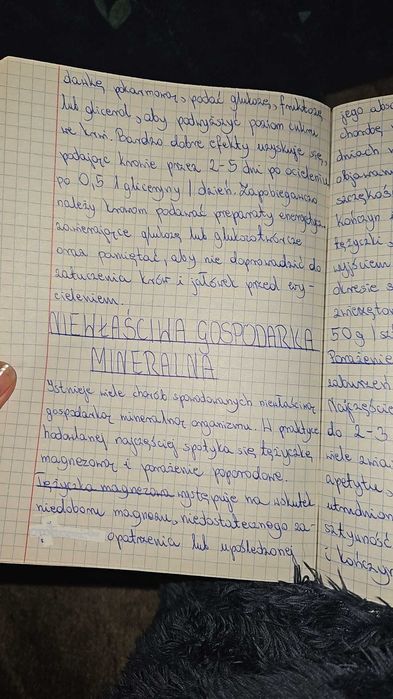 dawkę pokarmową, podać glukozę, fruktozę
lub glicerol, aby podwyższyć poziom cukru
we krwi. Bardzo dobre efekty uzyskuje się,
podając krowie przez 2-5 dni po ocieleniu
po 0,5 l gliceryny / dzień. Zapobiegawczo
należy krowom podawać preparaty energetycz.
zawierające glukozę lub glukozotwórcze
oraz pamiętać, aby nie doprowadzić do
zatuczenia krów i jałówek przed wy-
cieleniem.
NIEWŁAŚCIWA GOSPODARKA
MINERALNA
Istnieje wiele chorób spowodowanych niewłaściwą
gospodarką mineralną organizmu. W praktyce
hodowlanej najczęściej spotyka się tężyczkę
magnezową i porażenie poporodowe.
Tężyczka magnezowa występuje na skutek
niedoboru magnezu, niedostatecznego za-
opatrzenia lub upośledzonej
jego abso
chorobę
dniach w
objawami
szczękoś
kończyn i
tężyczki
wyjściem
okresie s
zwierzętom
50g / szt
Porażenie
zaburzeń
Najczęście
do 2-3
wiele zwia
apetytu,
utrudnion
sztywność
i kończyn